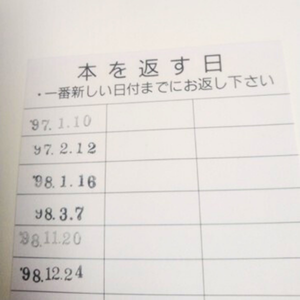 本を返す日
・一番新しい日付までにお返し下さい
'97.1.10
'97.2.12
'98.1.16
'98.3.7
'98.11.20
'98.12.24